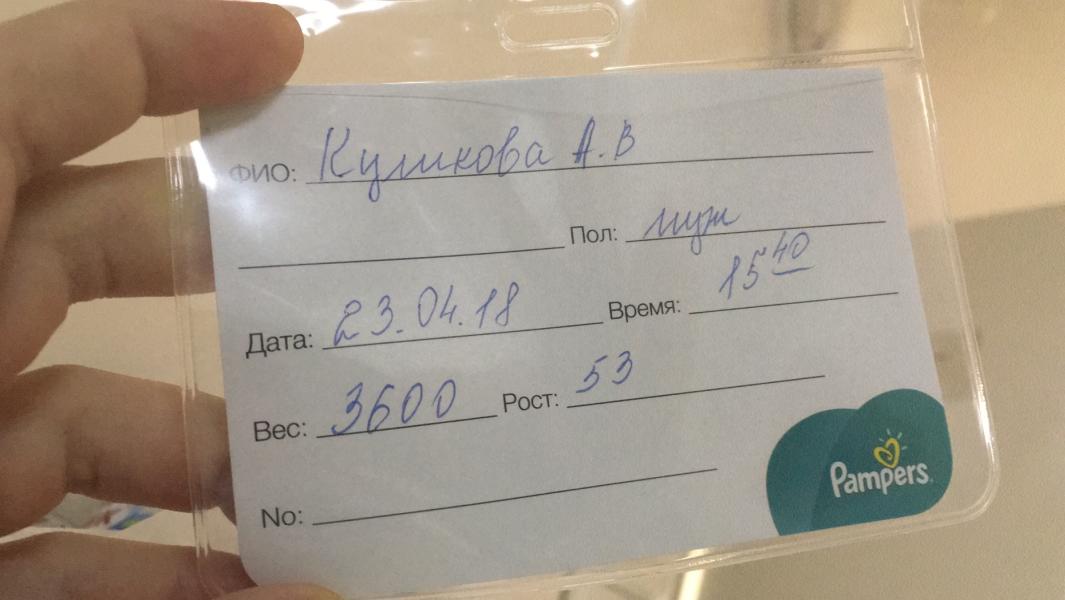 ФИО: Куликова А.В
Пол: муж
Дата: 23.04.18 Время: 15 40
Вес: 3600 Рост: 53
No:
Pampers